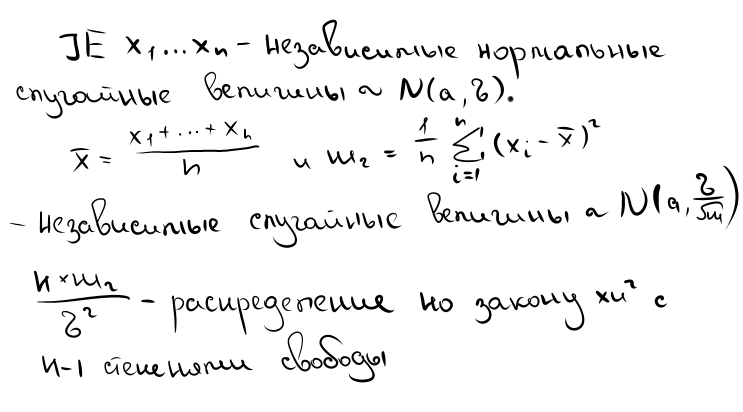 ]E x₁...xₙ – независимые нормальные
случайные величины ~ N(a, б).
x̄ = (x₁ + ... + xₙ)/n и m₂ = 1/n Σᵢ₌₁ⁿ (xᵢ – x̄)²
– независимые случайные величины ~ N(a, б/√m)
(n × m₂)/б² – распределение по закону хи² с
n-1 степенями свободы